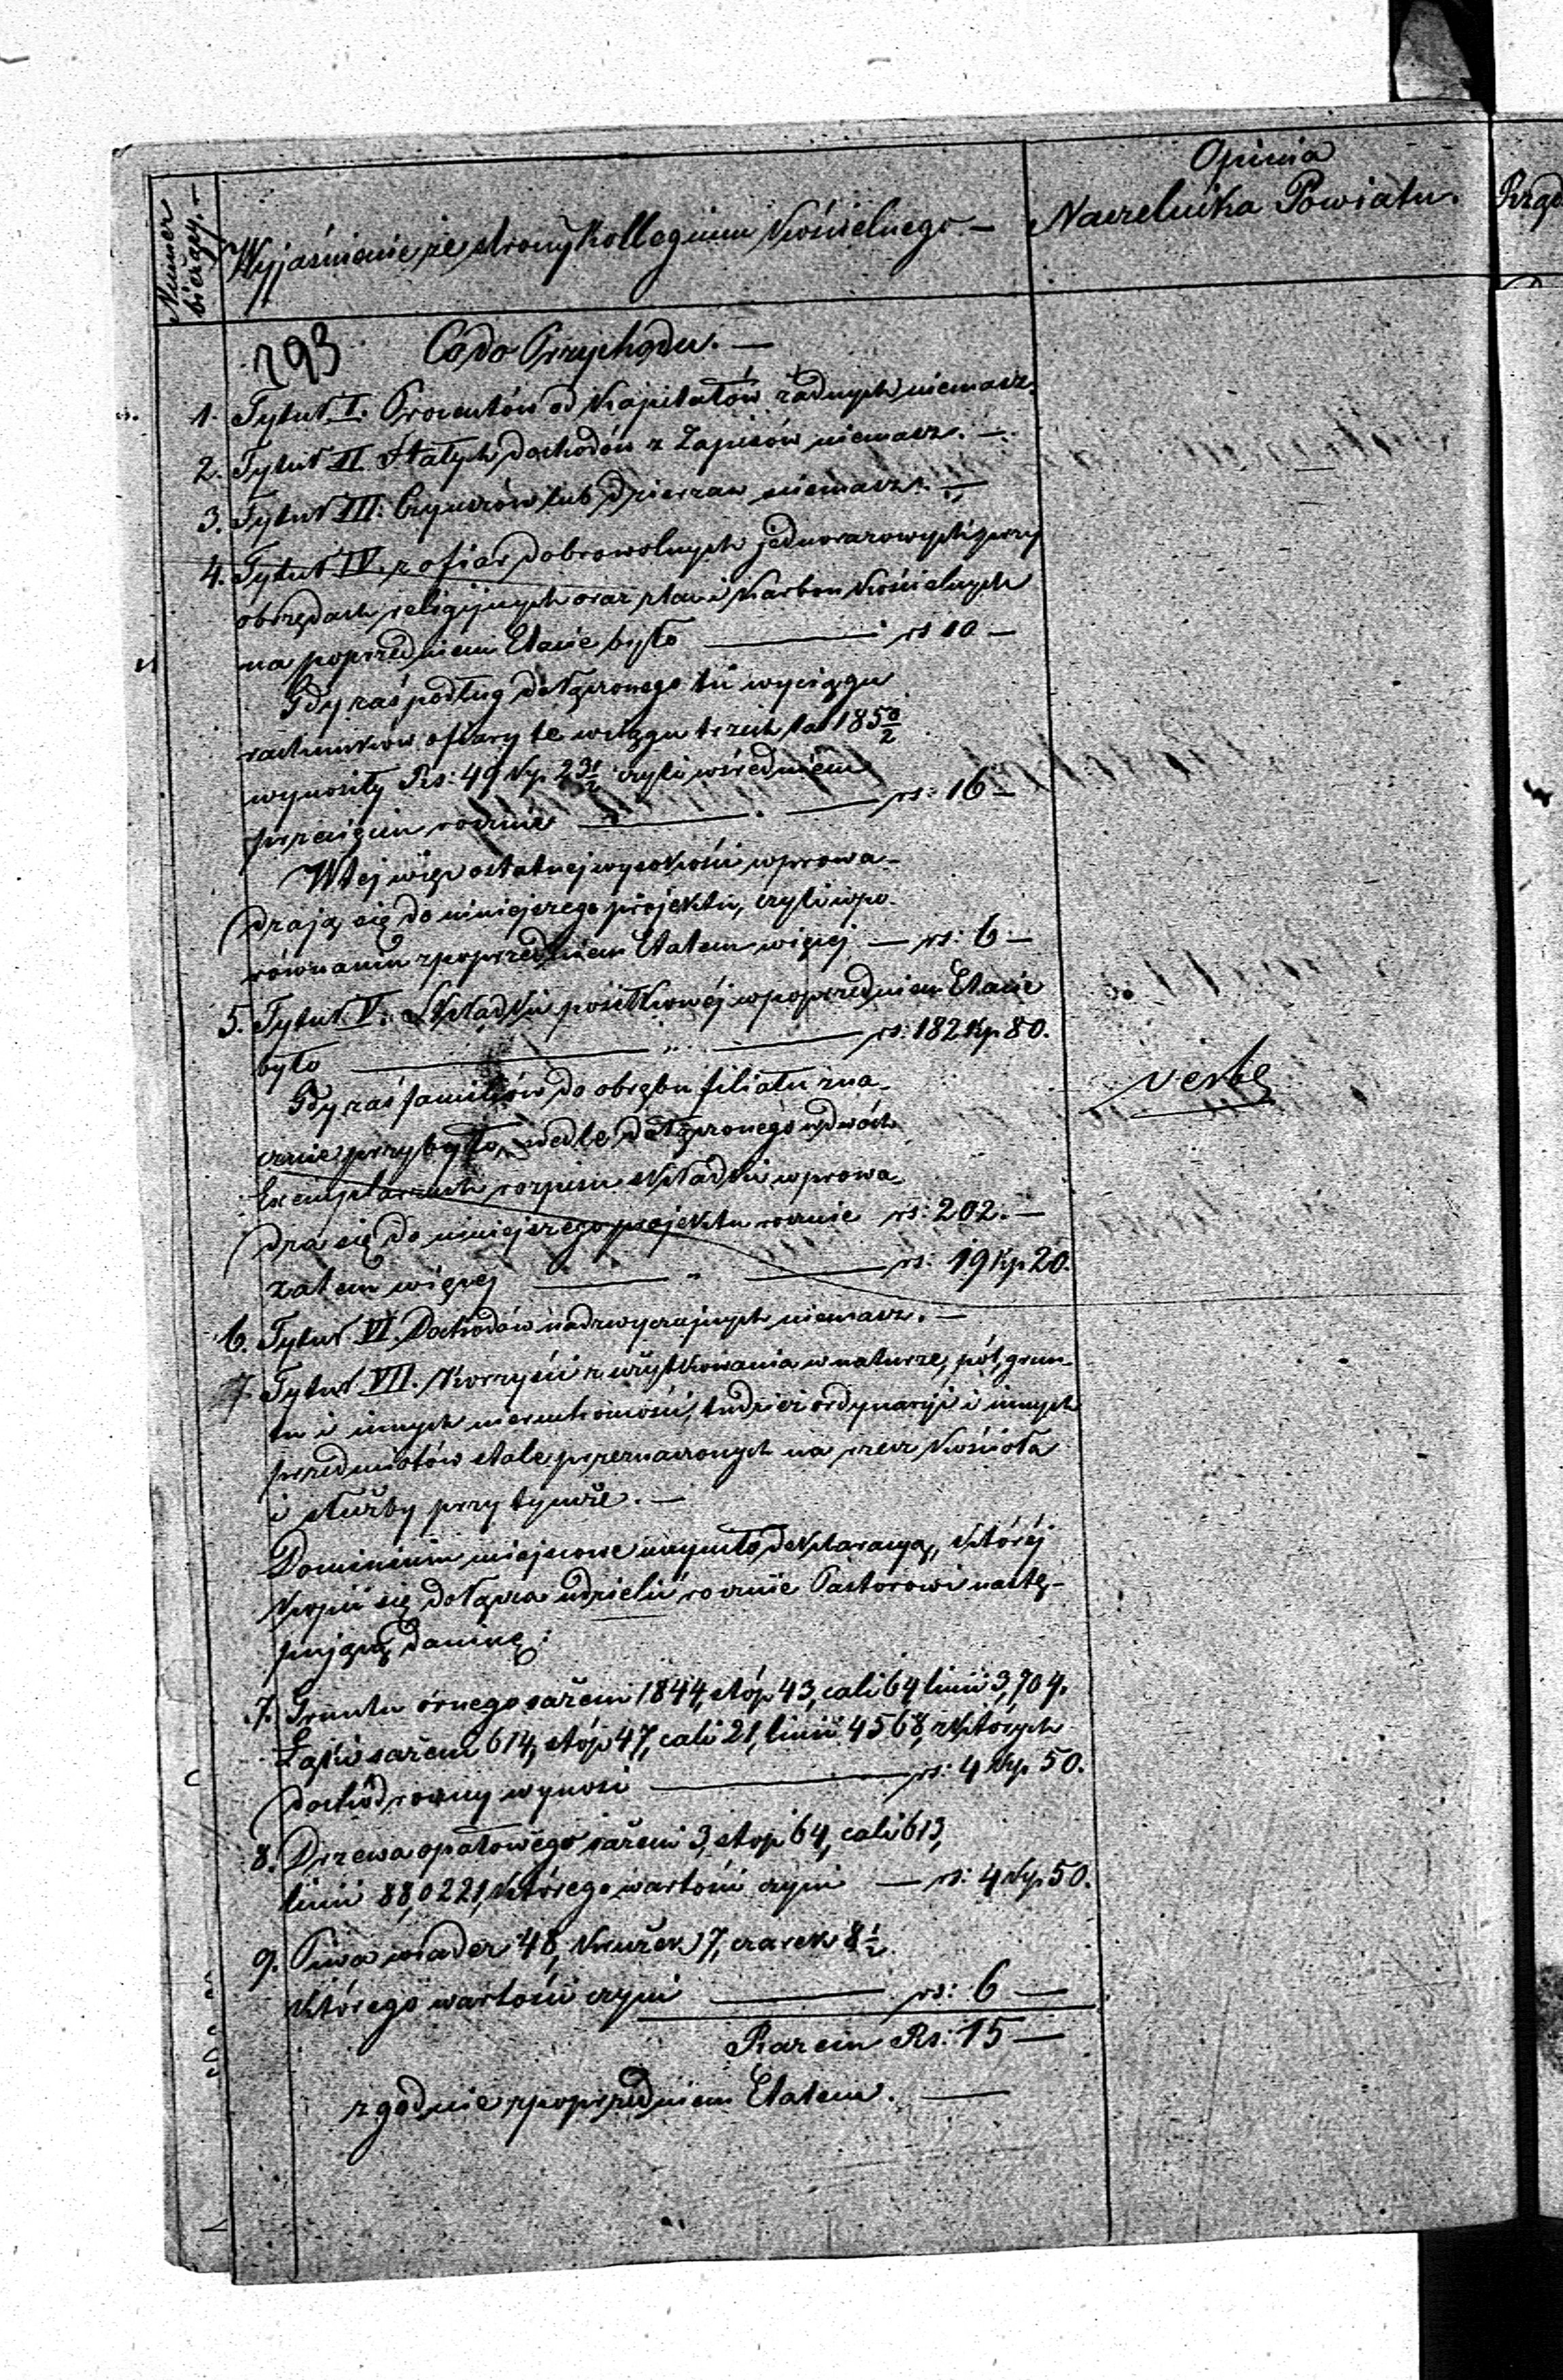 Numer bieżący. –
Wyjaśnienie ze strony Kollegium Kościelnego. –
Opinia
Naczelnika Powiatu.
Rząd
193 Co do Przychodu. –
1. Tytuł I. Procentów od Kapitałów żadnych niemasz.
2. Tytuł II. Stałych dochodów z Zapisów niemasz. –
3. Tytuł III. Czynszów lub dzierzaw niemasz. –
4. Tytuł IV. z ofiar dobrowolnych jednorazowych przy
obrzędach religijnych oraz z tac i Karbon Kościelnych
na poprzedniem Etacie było — rs 10 –
Gdy zaś podług dołączonego tu wyciągu
rachunków ofiary te wciągu trzech lat 185 0/2
wynosiły Rs: 49 Kp. 23 1/2 czyli w średniem
przecięciu rocznie — rs: 16 –
W tej więc ostatnej wysokości wprowa-
dzają się do niniejszego projektu, czyli wpo-
równaniu z poprzedniem Etatem więcej — rs: 6 –
5. Tytuł V. Składki posiłkowéj w poprzedniem Etacie
było — rs: 182 Kp. 80.
Gdy zaś familiów do obrębu filiału zna-
cznie przybyło, wedle dołączonego w dwóch
Exemplarzach rozpisu składki wprowa-
dza się do niniejszego projektu rocznie rs: 202. –
zatem więcej — rs: 19 Kp 20.
6. Tytuł VI. Dochodów nadzwyczajnych niemasz. –
7. Tytuł VII. Korzyści z użytkowania w naturze, pól, grun-
tu i innych nieruchomości, tudzież ordynaryi i innych
przedmiotów stale przeznaczonych na rzecz Kościoła
i służby przy tymże. –
Dominium miejscowe uczyniło deklaracyą, któréj
kopii się dołącza udzielić rocznie Pastorowi nastę-
pującą daninę:
7. Gruntu órnego sażeni 1844, stóp 43, cali 64 linii 3,704.
Łąki sażeni 614, stóp 47, cali 21, linii 4568, z których
dochód roczny wynosi — rs: 4 Kp. 50.
8. Drzewa opałowego sażeni 3, stop 64, cali 613,
linii 88,0221, którego wartości czyni — rs: 4 Kp. 50.
9. Piwa wiader 48, Krużek 7, czarek 8 1/2
którego wartości czyni — rs: 6 –
Razem Rs: 15 –
zgodnie z poprzedniem Etatem. –